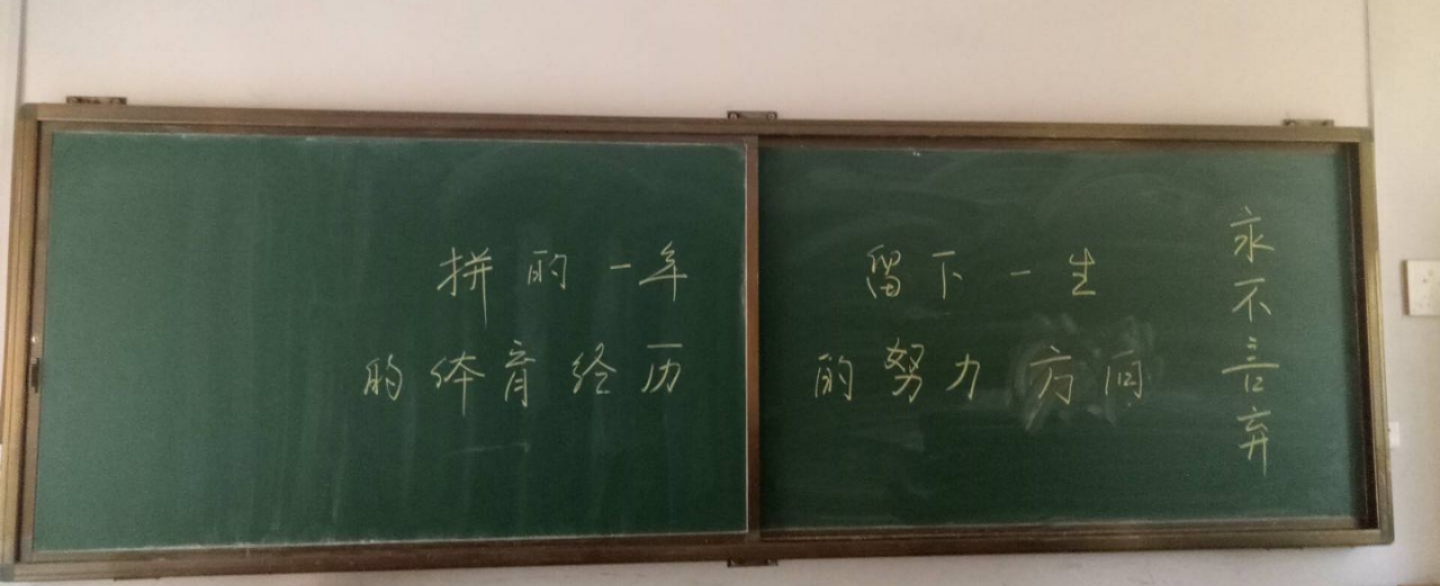 拼的一年
的体育经历
留下一生
的努力方向
永不言弃